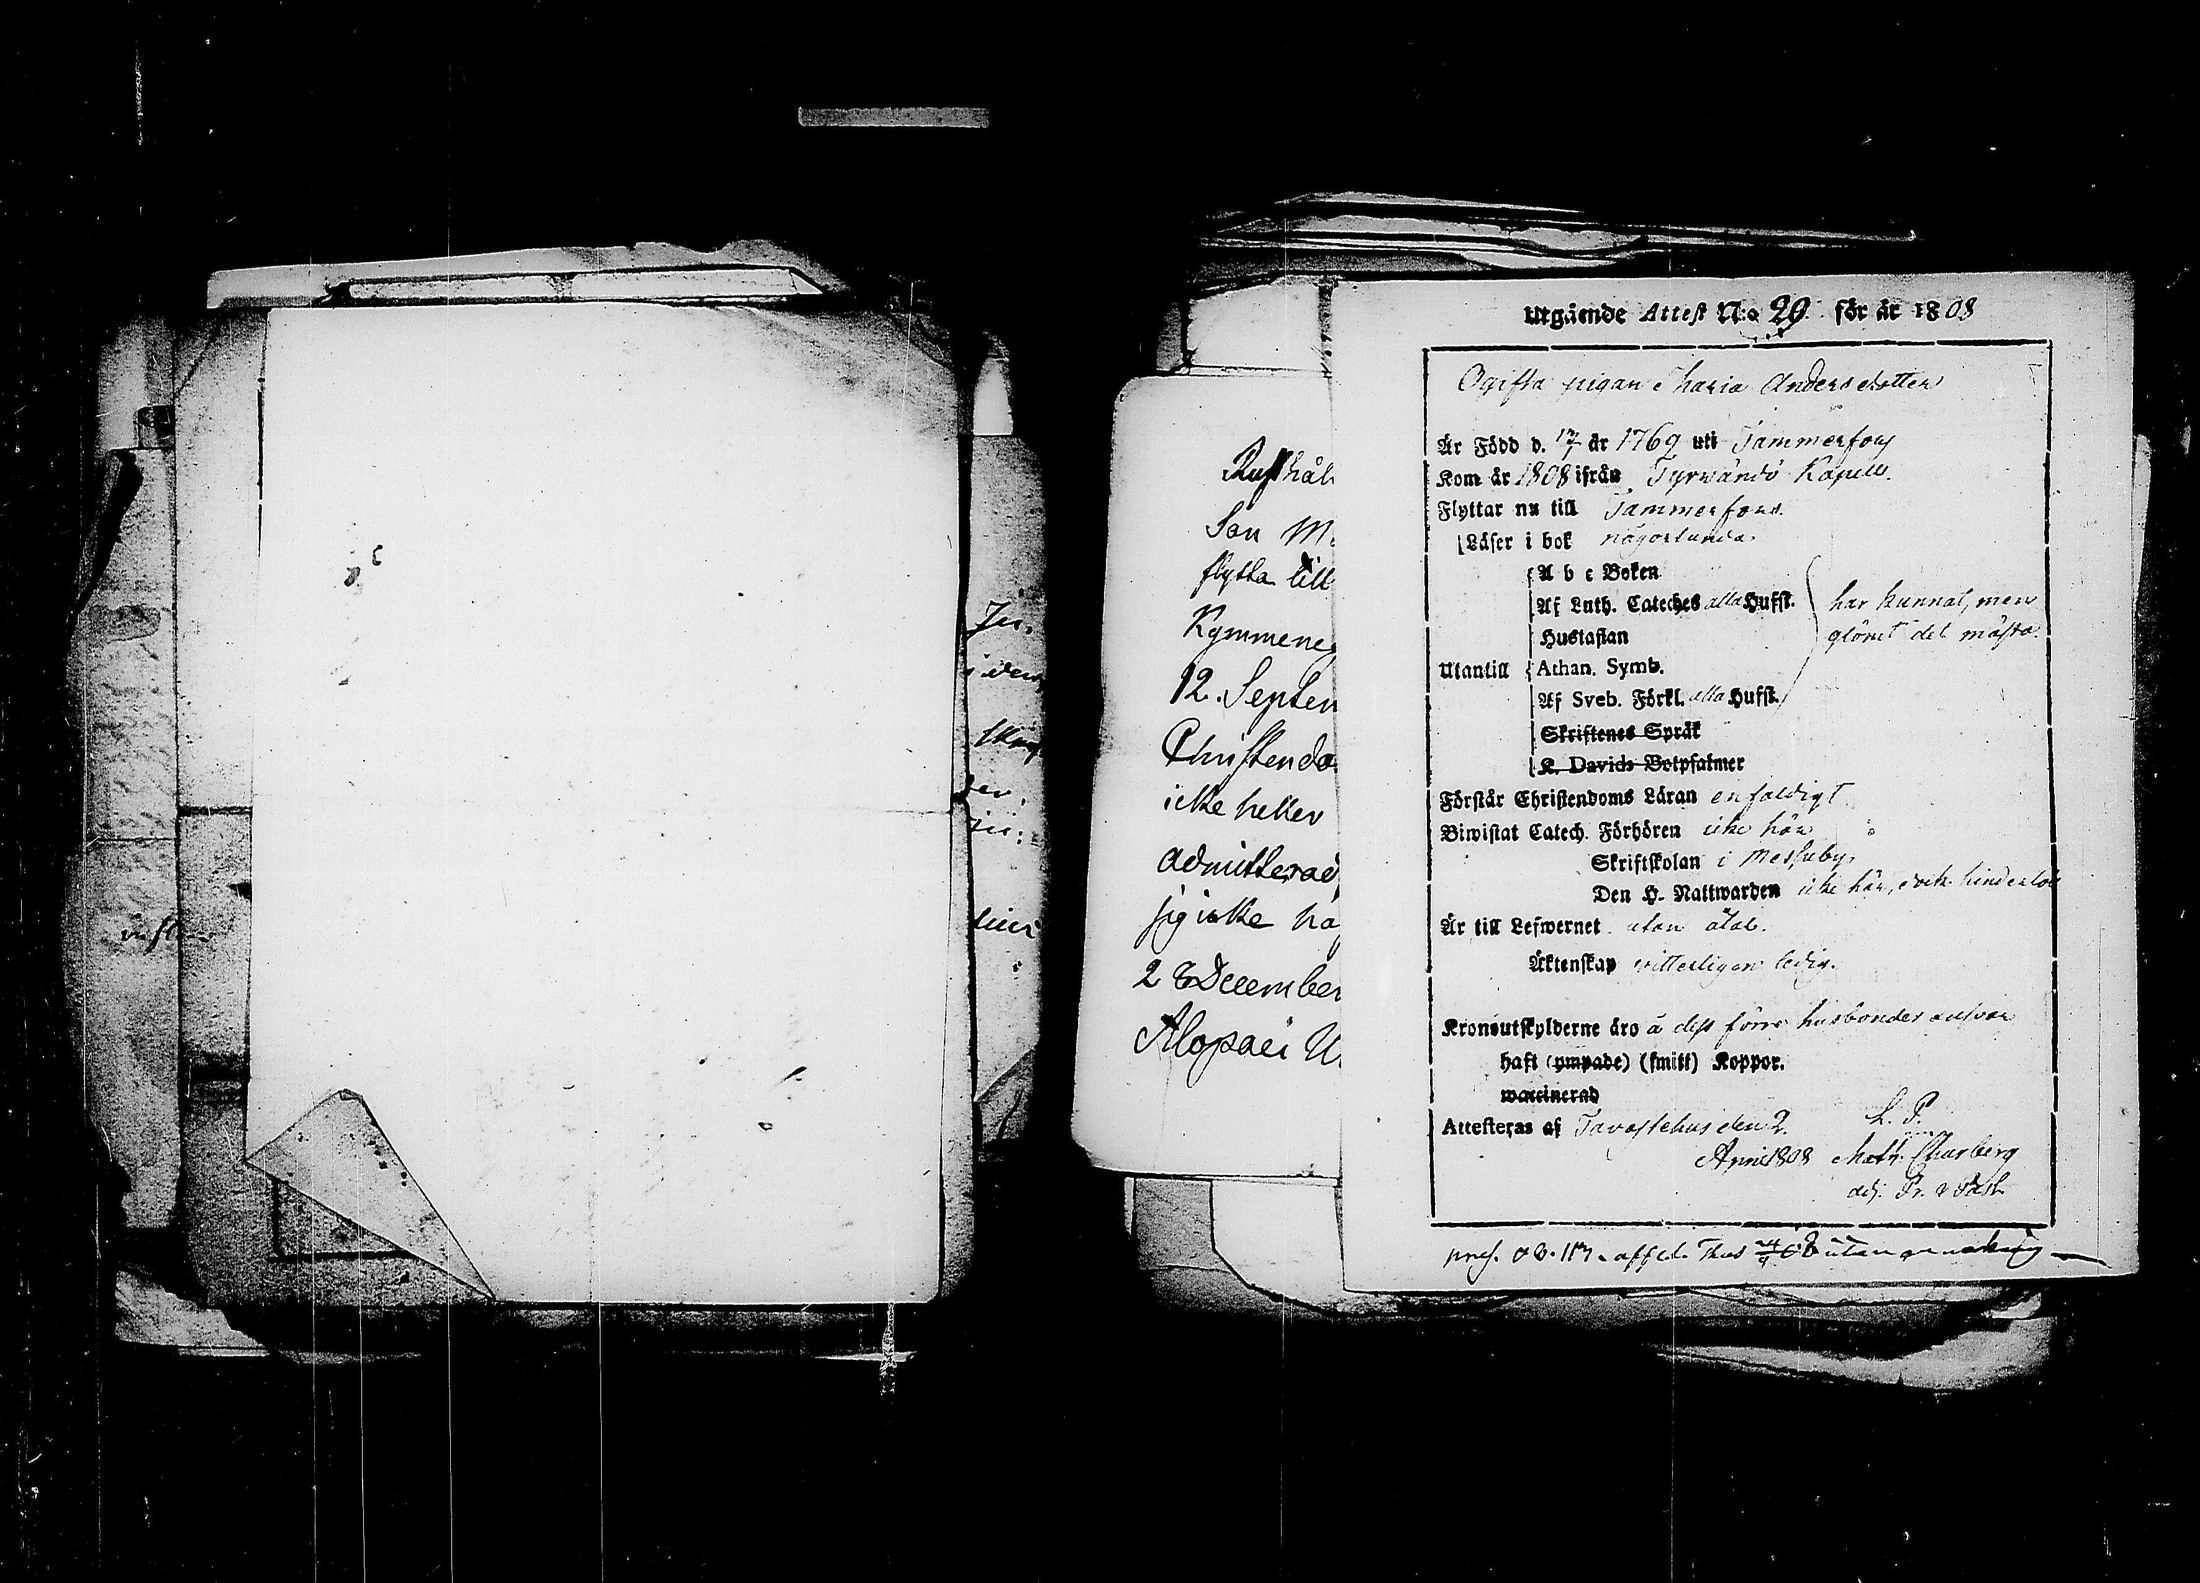 Ju,
i den
ter,
lius
Rusthål
Son M.
flytta till
Kymmene
12. Septem
Christendo
icke heller
admitterad
sig icke ha
28 December
Alopaei U.
Utgående Attest N:o 29 för år 1808
Ogifta pigan Maria Andersdotter
Är Född d. 17/7 år 1769 uti Tammerfors
Kom år 1808 ifrån Tyrwändö Kapell.
Flyttar nu till Tammerfors.
Läser i bok någorlunda
A b c Boken
Af Luth. Cateches alla Hufst. har kunnat, men
Hustaflan glömt det mästa.
Utantill Athan. Symb.
Af Sveb. Förkl. alla Hufst.
Skriftenes Språk
K. Davids Botpsalmer
Förstår Christendoms Läran enfaldigt
Biwistat Catech. Förhören icke här
Skriftskolan i Messuby.
Den H. Nattwarden icke här, dock hinderlös
Är till Lefwernet utan åtal.
Äktenskap witterligen ledig.
Kronoutskylderne äro å dess förre husbondes answar
haft (ympade) (smitt) Koppor.
waccinerad
Attesteras af Tavastehus den 2. L. P.
April 1808 Matt. Churberg
adj. Pr. v Past.
pres. utan anmärkning